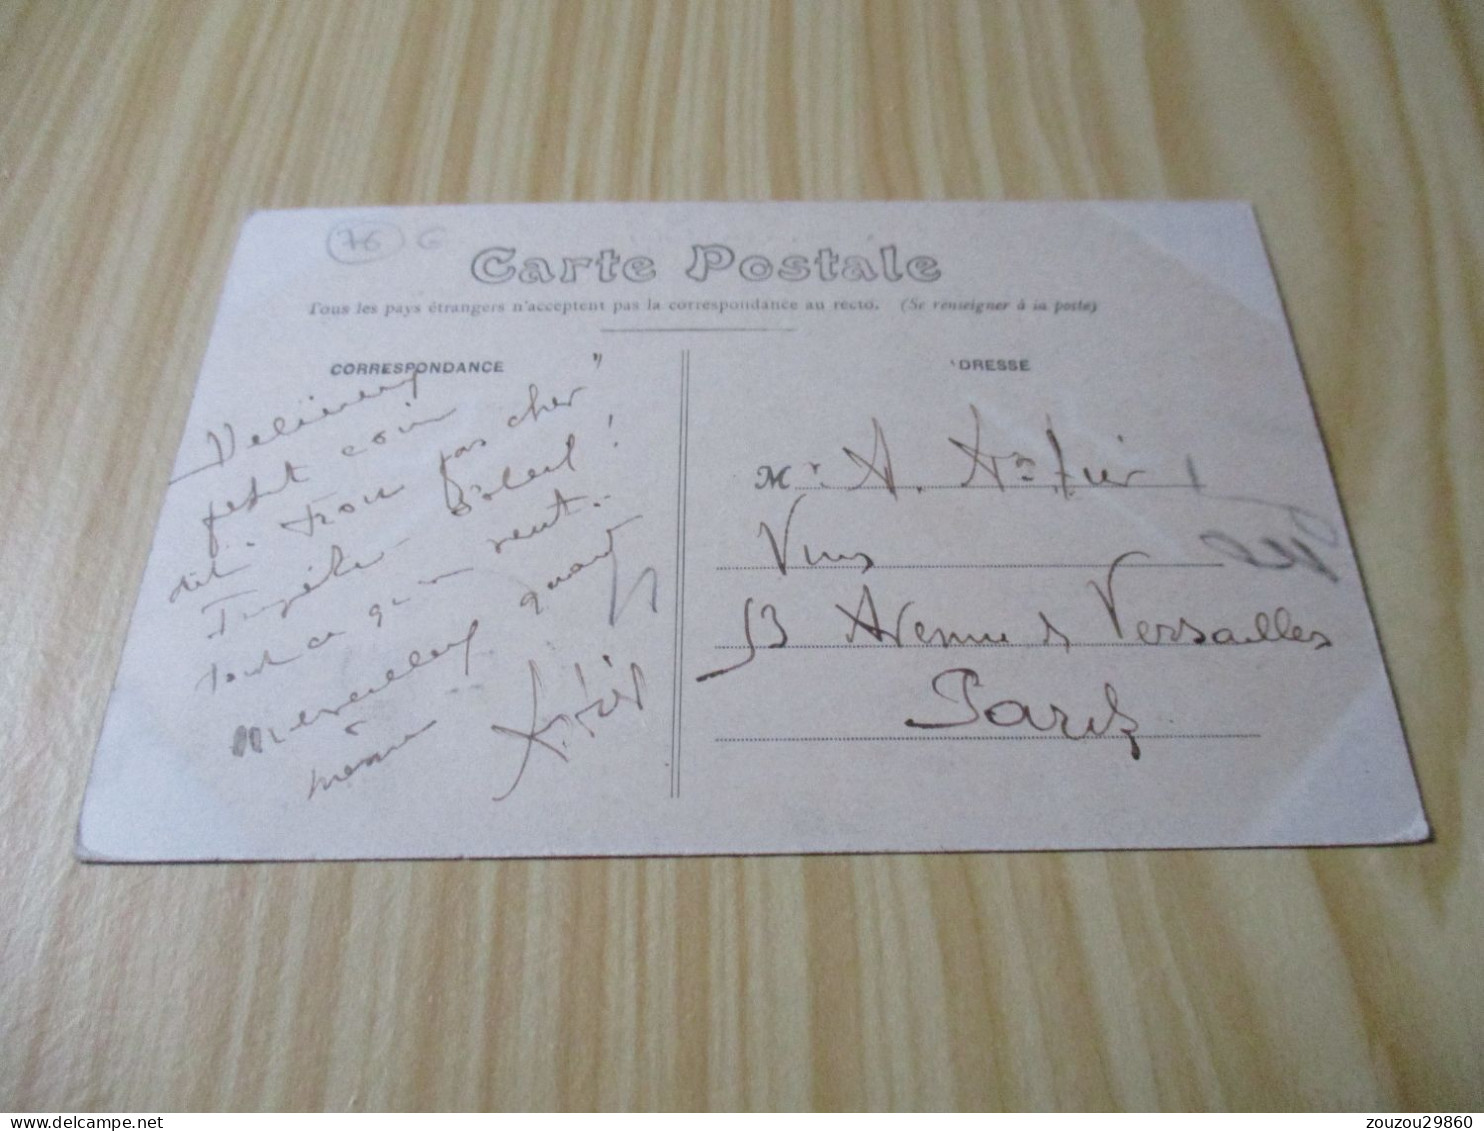 76 G
Carte Postale
Tous les pays étrangers n'acceptent pas la correspondance au recto. (Se renseigner à la poste)
CORRESPONDANCE
Delicieux
petit coin "
dit .. trou pas cher "
Soleil !
tout ce qu'on veut..
merveilleux quand
même
ADRESSE
Mr A.
Vins
53 Avenue de Versailles
Paris
zouzou29860